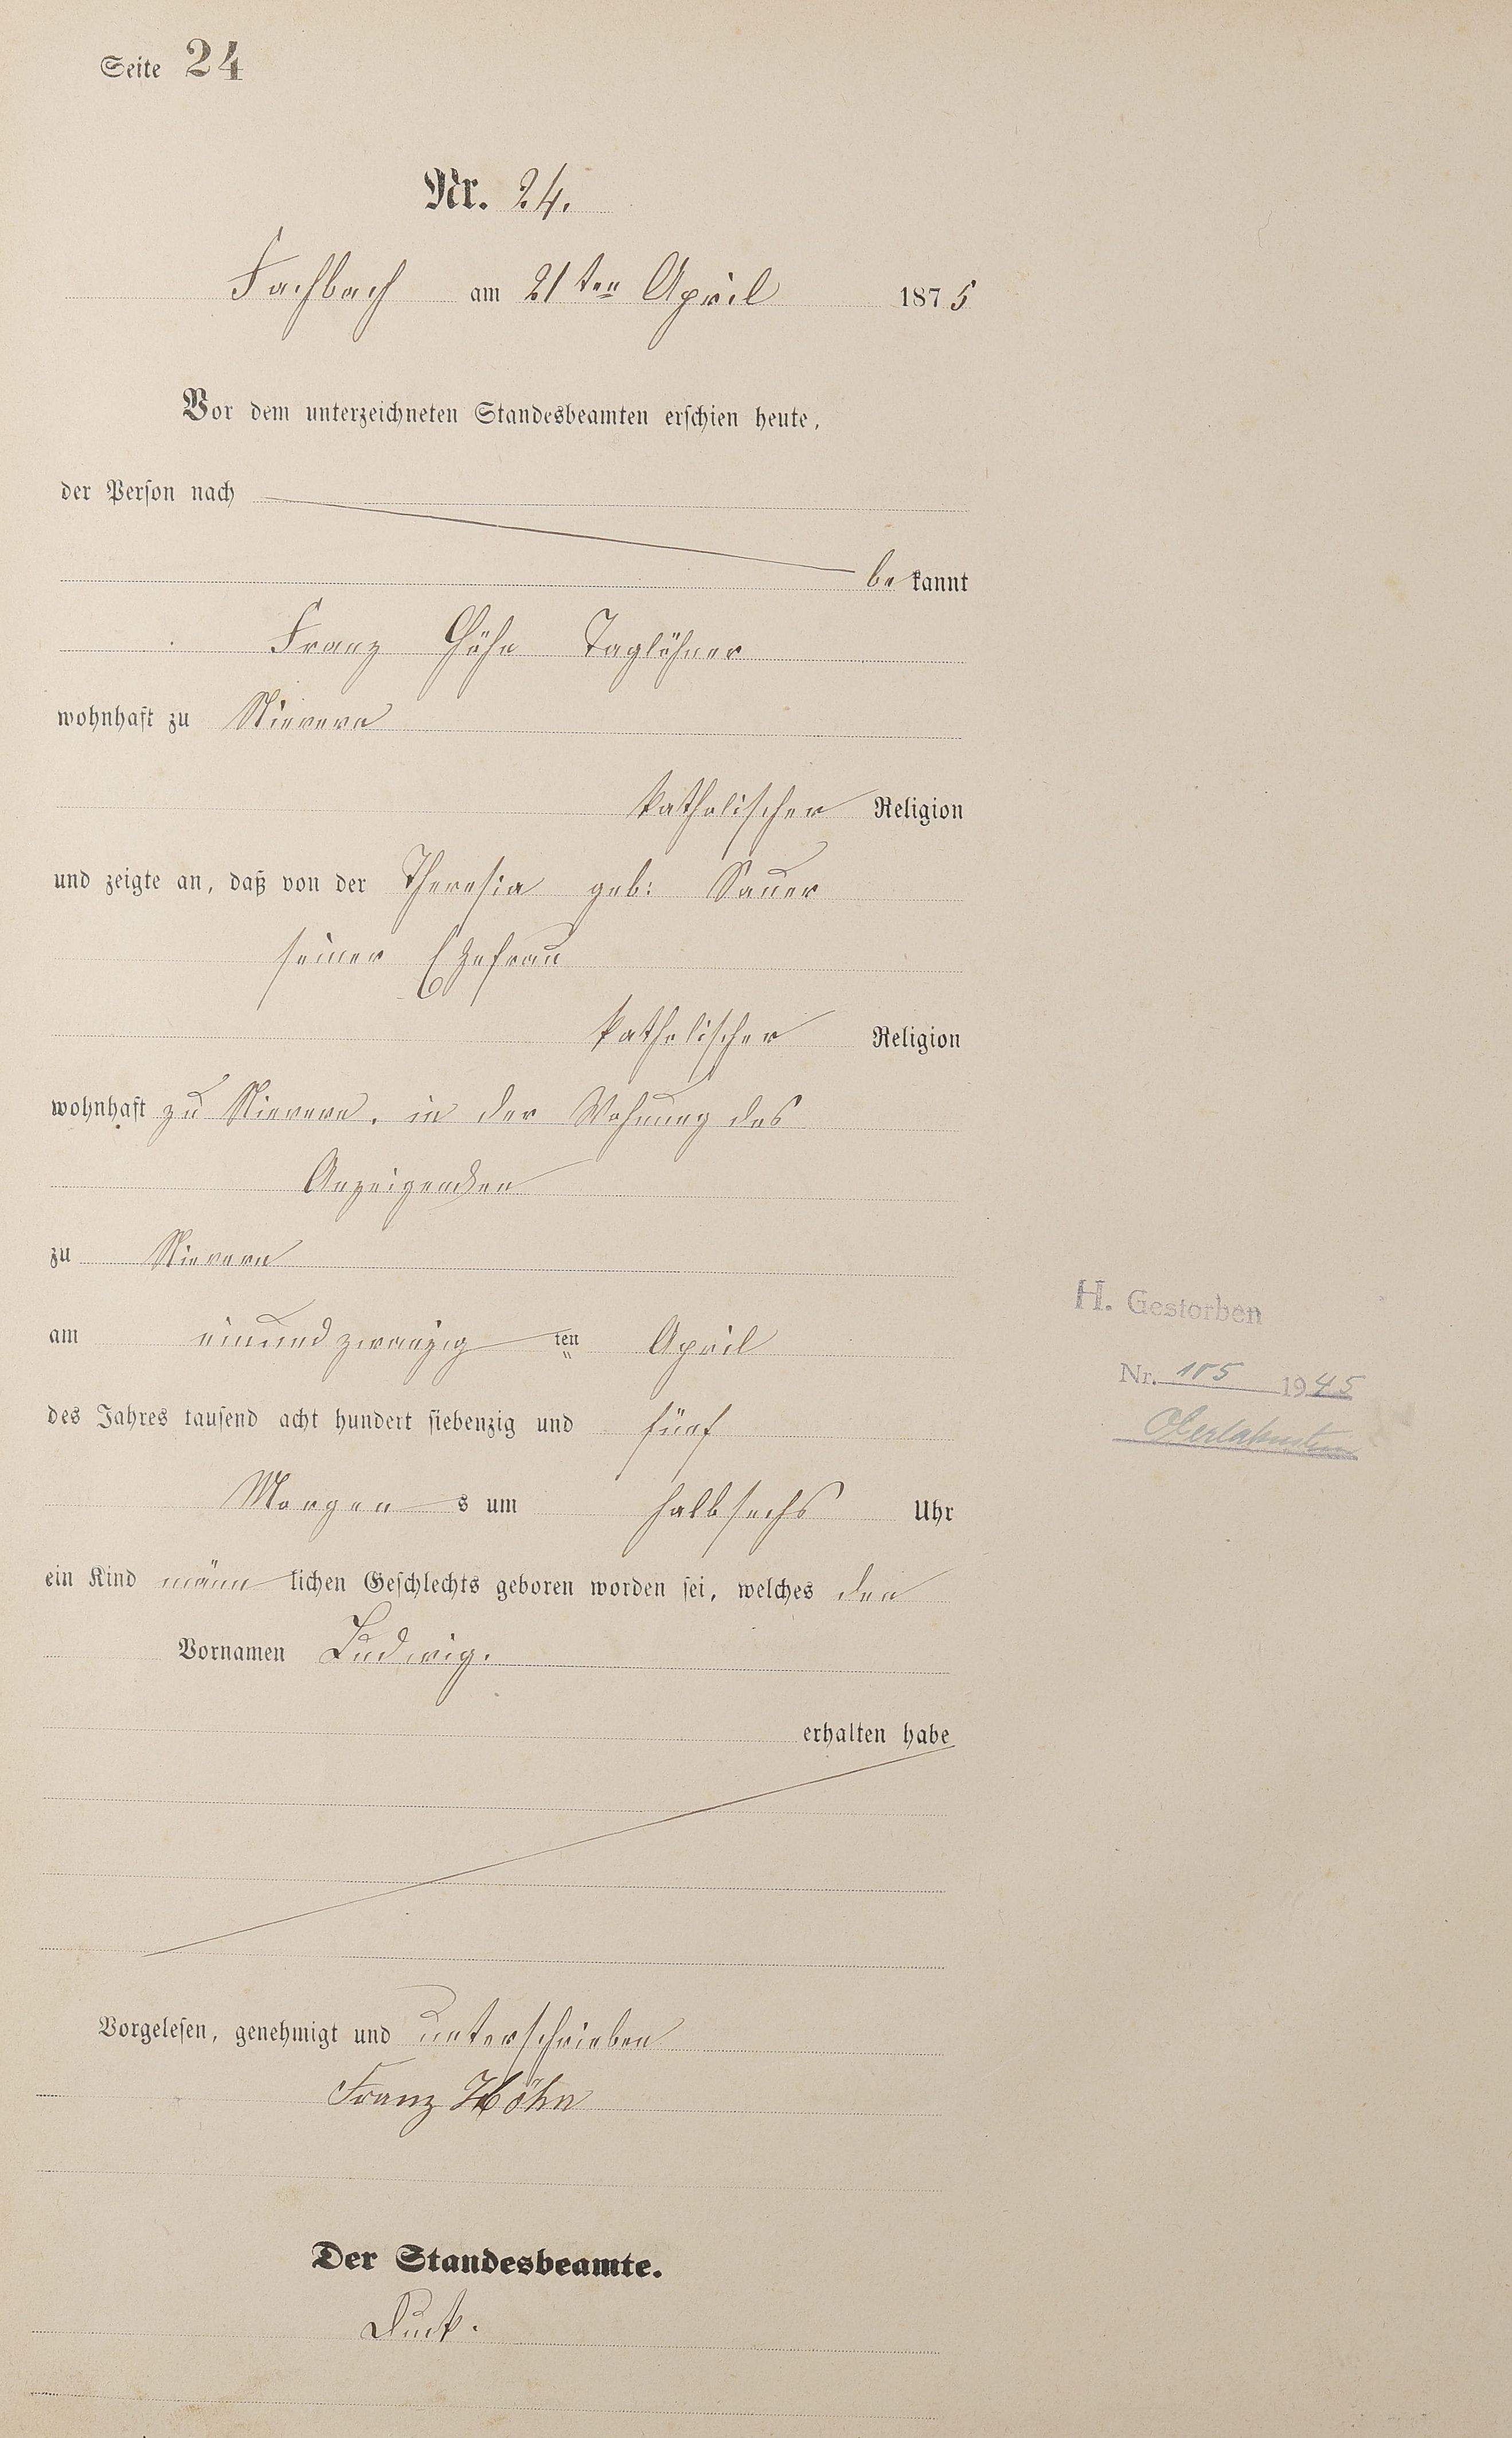 Seite 24
Nr. 24.
Fachbach am 21ten April 1875
Vor dem unterzeichneten Standesbeamten erschien heute,
der Person nach
bekannt
Franz Höhn Taglöhner
wohnhaft zu Nievern
katholischer Religion
und zeigte an, daß von der Theresia geb: Sauer
seiner Ehefrau
katholischer Religion
wohnhaft zu Nievern, in der Wohnung des
Anzeigenden
zu Nievern
am einundzwanzigten April
des Jahres tausend acht hundert siebenzig und fünf
Morgens um halbsechs Uhr
ein Kind männlichen Geschlechts geboren worden sei, welches den
Vornamen Ludwig.
erhalten habe
Vorgelesen, genehmigt und unterschrieben
Franz Höhn
Der Standesbeamte.
H. Gestorben
Nr. 105 1945
Oberlahnstein